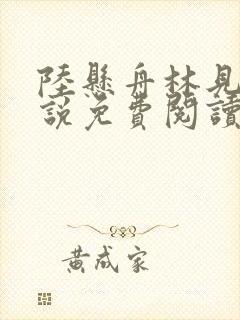 陸懸舟林見
説免費閱讀
黃成家